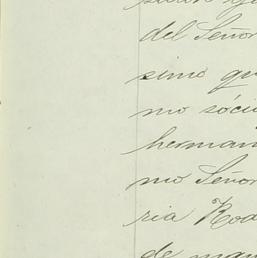 del Señor
simo qu
mo sócio
herman
mo Señor
ria Rod
de man